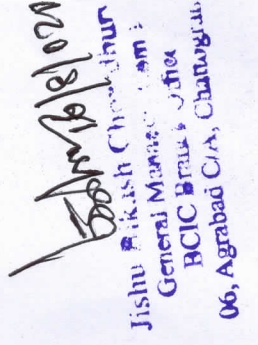 Jishu Bikash Chowdhury
General Manager
BCIC Branch Office
06, Agrabad C/A, Chattogram